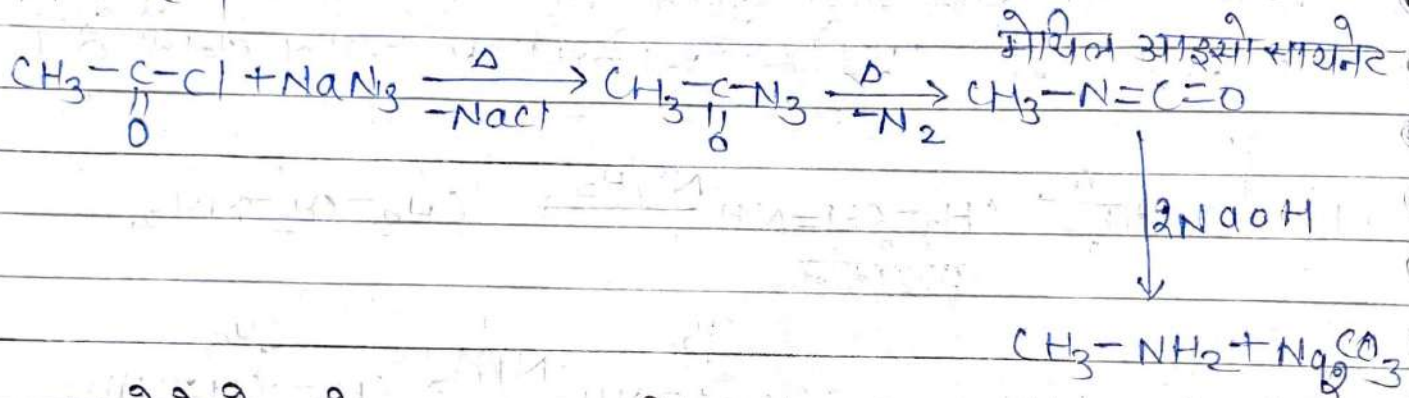 मेथिल आइसोसायनेट
CH₃-C-Cl + NaN₃ —Δ/-NaCl→ CH₃-C-N₃ —Δ/-N₂→ CH₃-N=C=O
|| ||
O O
2NaOH
CH₃-NH₂ + Na₂CO₃